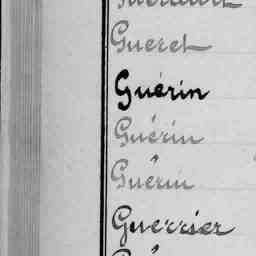 Gueret
Guérin
Guérin
Guérin
Guerrier